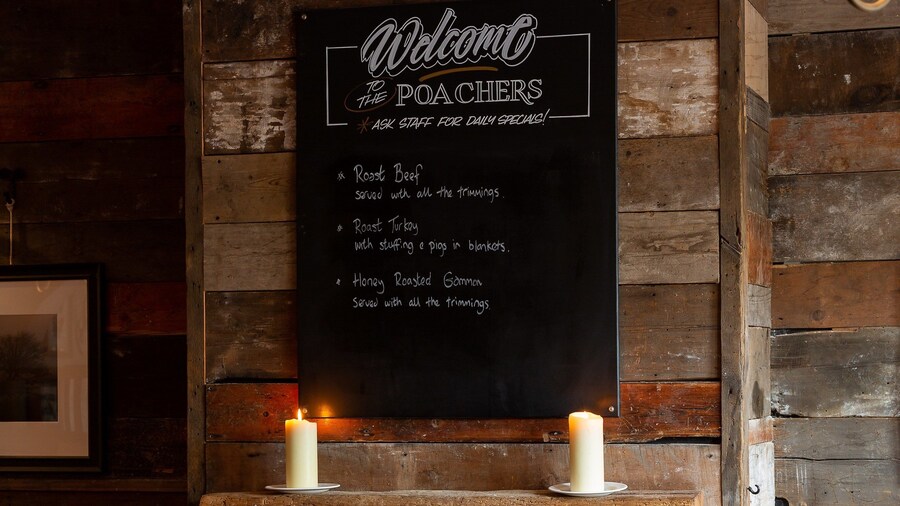 Welcome
TO THE POACHERS
*ASK STAFF FOR DAILY SPECIALS!
* Roast Beef
Served with all the trimmings.
* Roast Turkey
with stuffing & pigs in blankets.
* Honey Roasted Gammon
Served with all the trimmings.